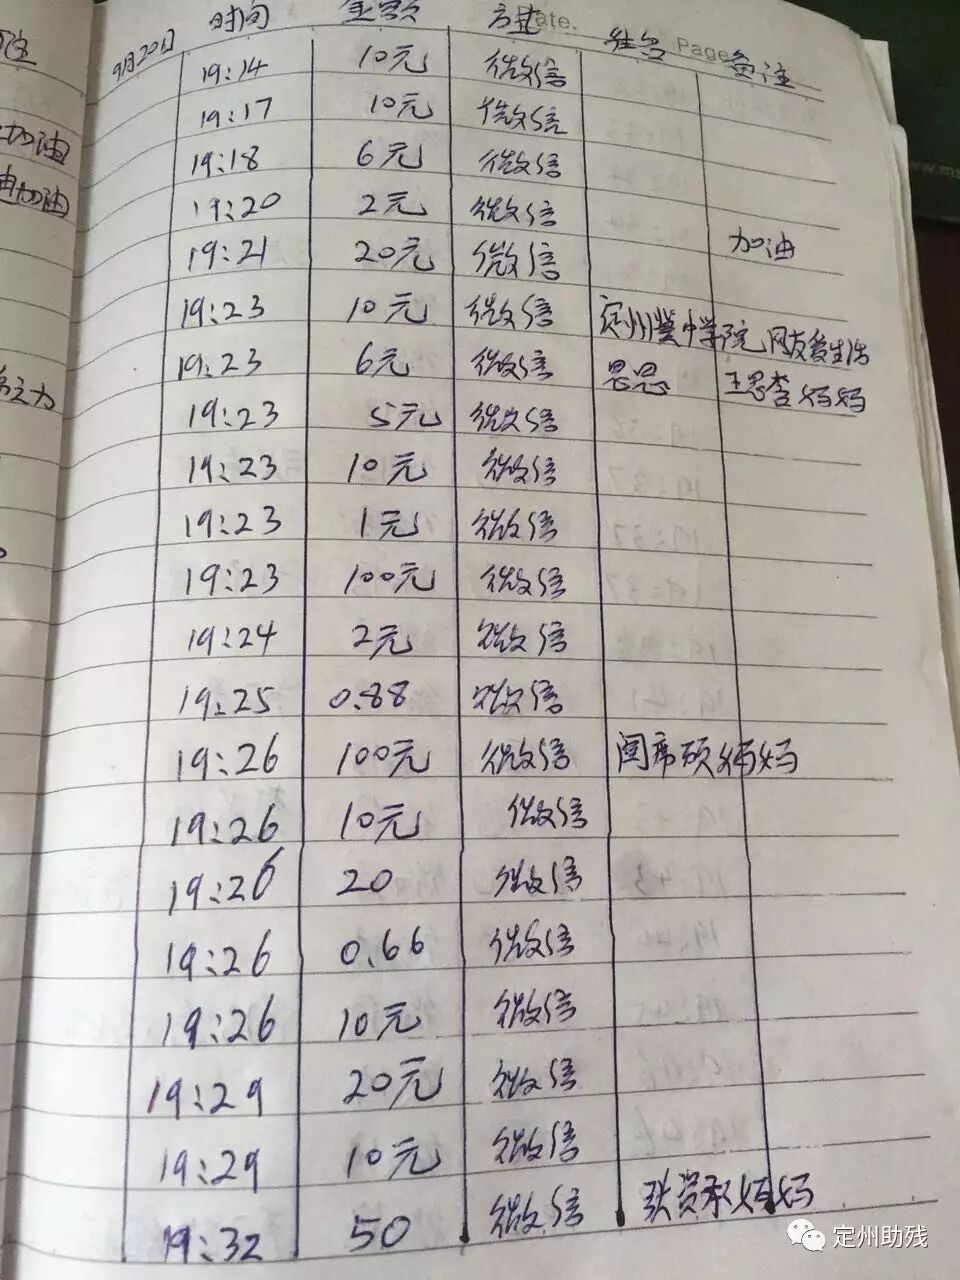 9月20日 时间 金额 方式 姓名 备注
Date.
Page
19:14 10元 微信
19:17 10元 微信
19:18 6元 微信
19:20 2元 微信
19:21 20元 微信 加油
19:23 10元 微信 定州冀中学院 网友爱生活
19:23 6元 微信 思思 王思杏妈妈
19:23 5元 微信
19:23 10元 微信
19:23 1元 微信
19:23 100元 微信
19:24 2元 微信
19:25 0.88 微信
19:26 100元 微信 闫席硕妈妈
19:26 10元 微信
19:26 20 微信
19:26 0.66 微信
19:26 10元 微信
19:29 20元 微信
19:29 10元 微信
19:32 50 微信 张贤承妈妈
注
加油
加油
之力
www.ms
定州助残